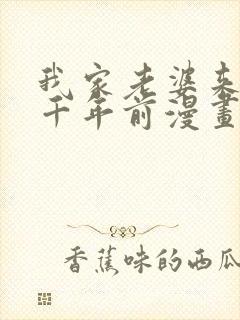 我家老婆来
千年前漫畫
香蕉味的西瓜